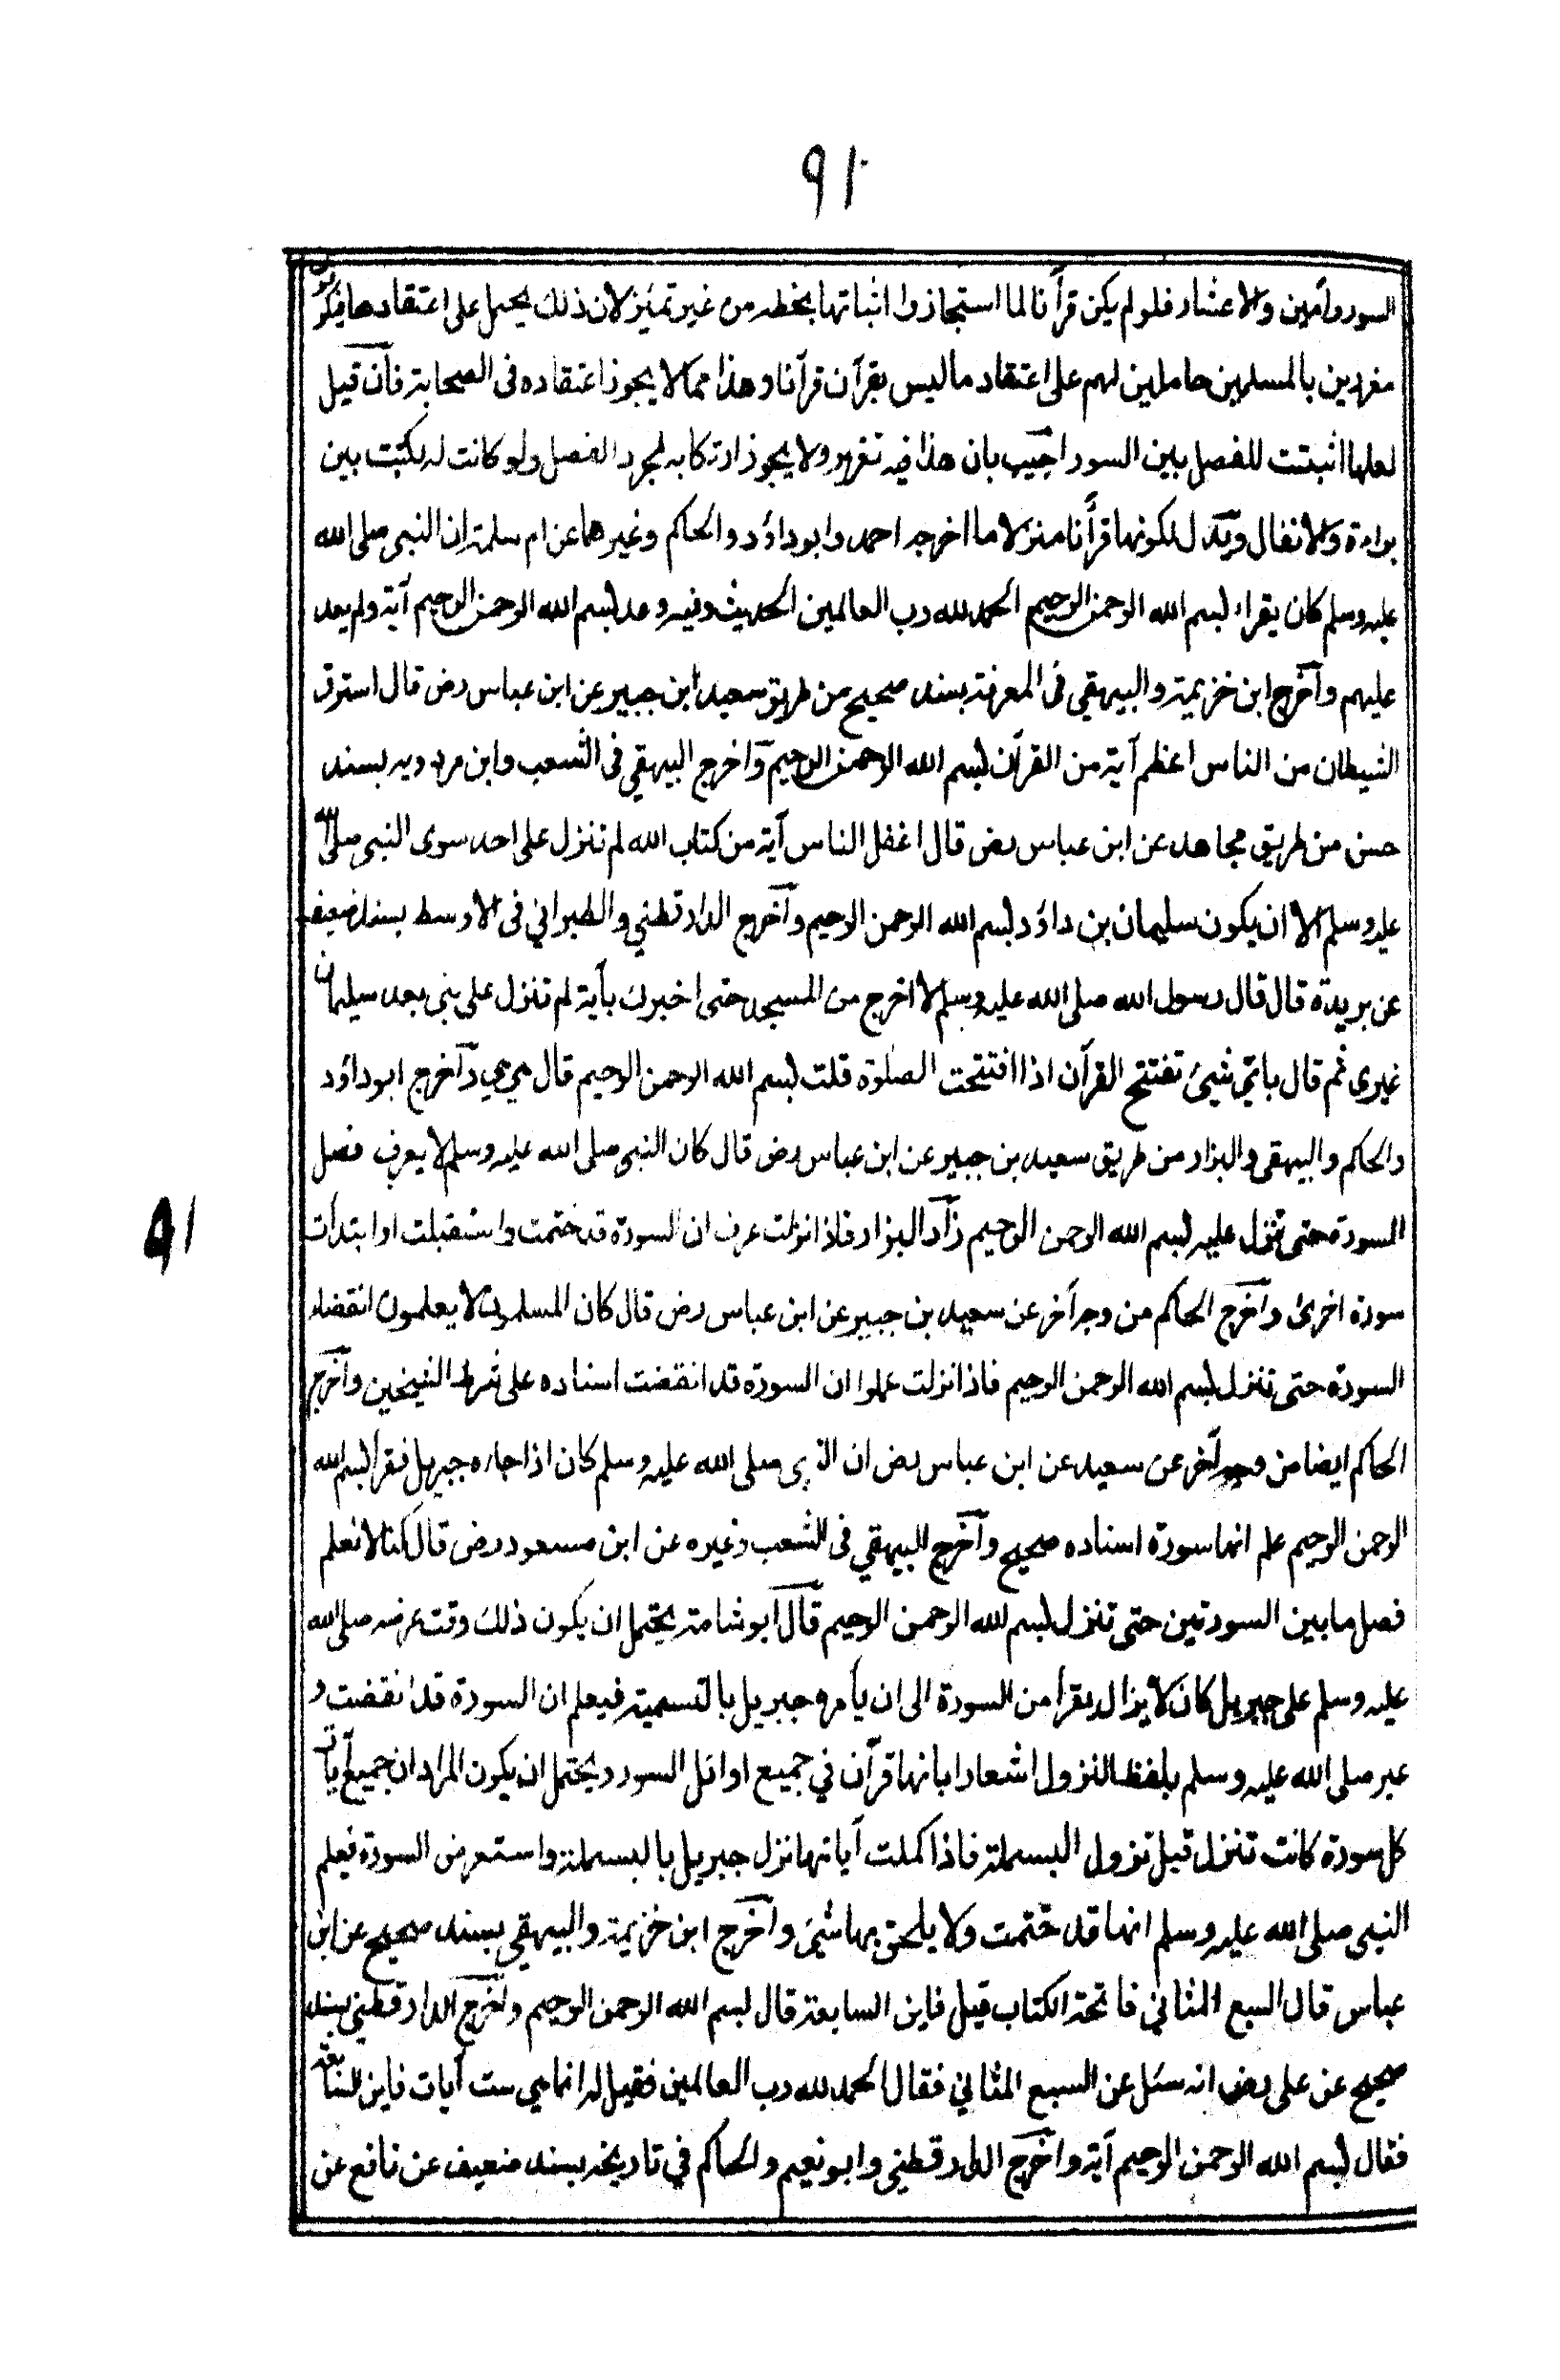 ٩١
السور وآمين والاعشار فلو لم يكن قرآنا لما استجازوا اثباتها بخطه من غير تمييز لان ذلك يحمل على اعتقادها فيكونوا
مغررين بالمسلمين حاملين لهم على اعتقاد ما ليس بقرآن قرآنا وهذا مما لا يجوز اعتقاده فى الصحابة فان قيل
لعلها اثبتت للفصل بين السور اجيب بان هذا فيه تغرير ولا يجوز ارتكابه لمجرد الفصل ولو كانت له لكتبت بين
براءة والانفال ويدل لكونها قرآنا منزلا ما اخرجه احمد وابو داؤد والحاكم وغيرهما عن ام سلمة ان النبى صلى الله
عليه وسلم كان يقراء بسم الله الرحمن الرحيم الحمد لله رب العالمين الحديث وفيه وعد بسم الله الرحمن الرحيم آية ولم يعد
عليهم وآخرج ابن خزيمة والبيهقي فى المعرفة بسند صحيح من طريق سعيد ابن جبير عن ابن عباس رض قال استرق
الشيطان من الناس اعظم آية من القرآن بسم الله الرحمن الرحيم وآخرج البيهقي فى الشعب وابن مردويه بسند
حسن من طريق مجاهد عن ابن عباس رض قال اغفل الناس آية من كتاب الله لم تنزل على احد سوى النبى صلى الله
عليه وسلم الا ان يكون سليمان بن داؤد بسم الله الرحمن الرحيم وآخرج الدارقطني والطبراني فى الاوسط بسند ضعيف
عن بريدة قال قال رسول الله صلى الله عليه وسلم لا اخرج من المسجد حتى اخبرك بآية لم تنزل على نبى بعد سليمان
غيرى ثم قال باى شيئ تفتتح القرآن اذا افتتحت الصلوة قلت بسم الله الرحمن الرحيم قال هي هي وآخرج ابو داؤد
والحاكم والبيهقى والبزار من طريق سعيد بن جبير عن ابن عباس رض قال كان النبى صلى الله عليه وسلم لا يعرف فصل
السورة حتى تنزل عليه بسم الله الرحمن الرحيم زآد البزار فاذا نزلت عرف ان السورة قد ختمت واستقبلت او ابتدأت
٩١
سورة اخرى وآخرج الحاكم من وجه آخر عن سعيد بن جبير عن ابن عباس رض قال كان المسلمون لا يعلمون انقضاء
السورة حتى تنزل بسم الله الرحمن الرحيم فاذا نزلت علموا ان السورة قد انقضت اسناده على شرط الشيخين وآخرج
الحاكم ايضا من وجه آخر عن سعيد عن ابن عباس رض ان النبى صلى الله عليه وسلم كان اذا جاءه جبريل فقرأ بسم الله
الرحمن الرحيم علم انها سورة اسناده صحيح وآخرج البيهقي فى الشعب وغيره عن ابن مسعود رض قال كنا لا نعلم
فصل ما بين السورتين حتى تنزل بسم الله الرحمن الرحيم قآل ابو شامة يحتمل ان يكون ذلك وقت عرضه صلى الله
عليه وسلم على جبريل كان لا يزال يقرأ من السورة الى ان يأمره جبريل بالتسمية فيعلم ان السورة قد انقضت و
عبر صلى الله عليه وسلم بلفظ النزول اشعارا بانها قرآن في جميع اوائل السور ويحتمل ان يكون المراد ان جميع آيات
كل سورة كانت تنزل قبل نزول البسملة فاذا كملت آياتها نزل جبريل بالبسملة واستعرض السورة فيعلم
النبى صلى الله عليه وسلم انها قد ختمت ولا يلحق بها شيئ وآخرج ابن خزيمة والبيهقي بسند صحيح عن ابن
عباس قال السبع المثاني فاتحة الكتاب قيل فاين السابعة قال بسم الله الرحمن الرحيم وآخرج الدارقطني بسند
صحيح عن على رض انه سئل عن السبع المثاني فقال الحمد لله رب العالمين فقيل له انما هي ست آيات فاين السابعة
فقال بسم الله الرحمن الرحيم آية وآخرج الدارقطني وابو نعيم والحاكم في تاريخه بسند ضعيف عن نافع عن